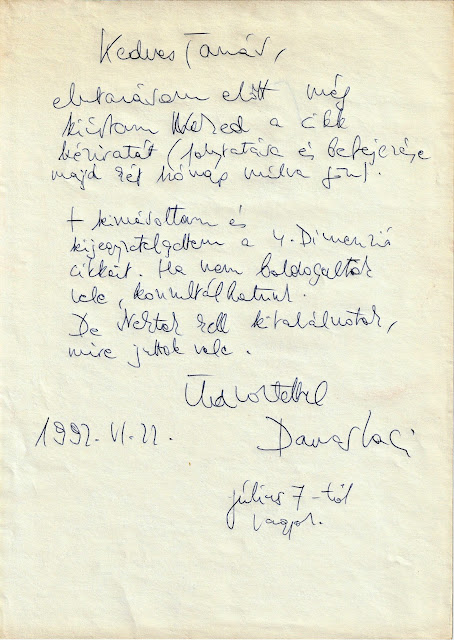 Kedves Tamás,
elutazásom előtt még
kiírtam Neked a cikk
kéziratát (folytatása és befejezése
majd két hónap múlva jön).
+ kimásoltam és
kijegyzetelgettem a 4. Dimenzió
cikkeit. Ha nem boldogultok
vele, konzultálhatunk.
De Nektek kell kitalálnotok,
mire jutok vele.
Üdvözlettel
1992. VI. 22.
Laci
július 7-től
vagyok.